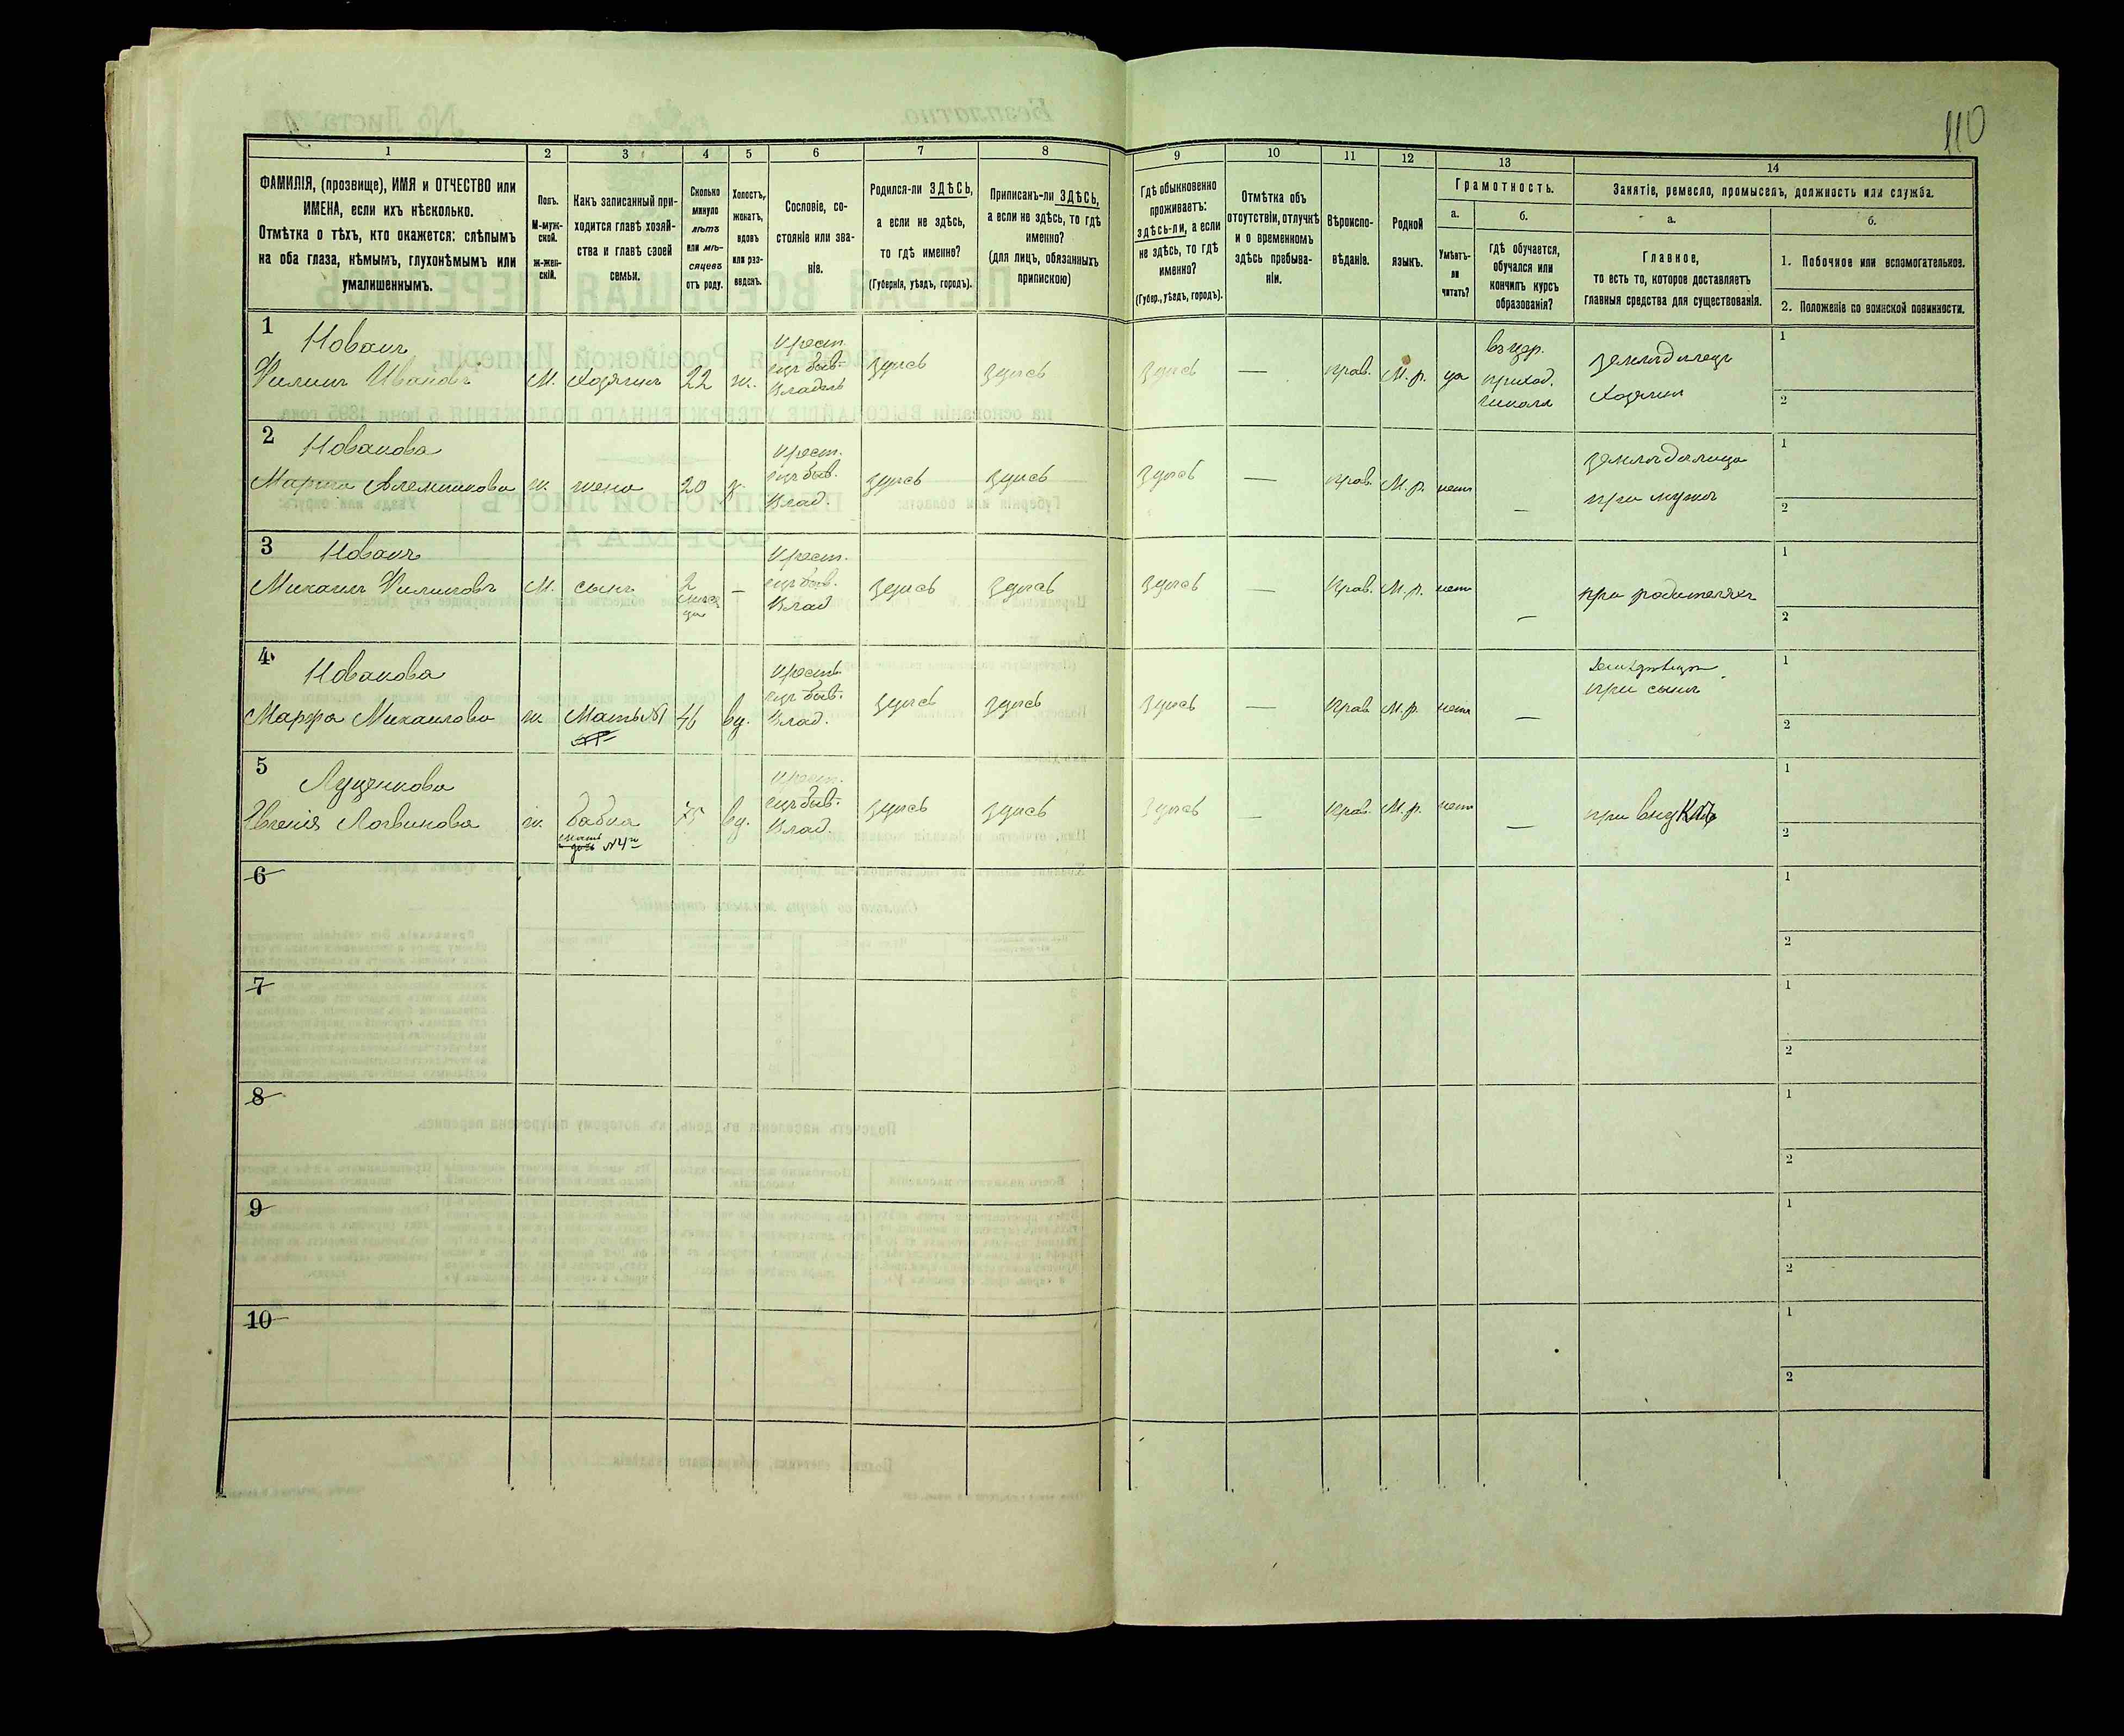 110
1
2
3
4
5
6
7
8
9
10
11
12
13
14
ФАМИЛІЯ, (прозвище), ИМЯ и ОТЧЕСТВО или
ИМЕНА, если ихъ нѣсколько.
Отмѣтка о тѣхъ, кто окажется: слѣпымъ
на оба глаза, нѣмымъ, глухонѣмымъ или
умалишеннымъ.
Полъ.
М-муж-
ской.
ж-жен-
скій.
Какъ записанный при-
ходится главѣ хозяй-
ства и главѣ своей
семьи.
Сколько
минуло
лѣтъ
или мѣ-
сяцевъ
отъ роду.
Холостъ,
женатъ,
вдовъ
или раз-
веденъ.
Сословіе, со-
стояніе или зва-
ніе.
Родился-ли ЗДѢСЬ,
а если не здѣсь,
то гдѣ именно?
(Губернія, уѣздъ, городъ).
Приписанъ-ли ЗДѢСЬ,
а если не здѣсь, то гдѣ
именно?
(для лицъ, обязанныхъ
припискою)
Гдѣ обыкновенно
проживаетъ:
здѣсь-ли, а если
не здѣсь, то гдѣ
именно?
(Губер., уѣздъ, городъ).
Отмѣтка объ
отсутствіи, отлучкѣ
и о временномъ
здѣсь пребыва-
ніи.
Вѣроиспо-
вѣданіе.
Родной
языкъ.
Грамотность.
а.
Умѣетъ-
ли
читать?
б.
гдѣ обучается,
обучался или
кончилъ курсъ
образованія?
Занятіе, ремесло, промыселъ, должность или служба.
а.
Главное,
то есть то, которое доставляетъ
главныя средства для существованія.
б.
1. Побочное или вспомогательное.
2. Положеніе по воинской повинности.
1
Новакъ
Филипъ Ивановъ
М.
хозяинъ
22
ж.
Крест.
изъ быв.
Владѣль
здѣсь
здѣсь
здѣсь
—
прав.
М. р.
да
въ цер.
приход.
школѣ
земледѣлецъ
хозяинъ
1
2
2
Новакова
ж.
жена
20
з.
Крест.
изъ быв.
Влад.
здѣсь
здѣсь
здѣсь
—
прав.
М. р.
нетъ
—
при мужѣ
1
2
3
Новакъ
Михаилъ Филиповъ
М.
сынъ
2
меся-
ца
—
Крест.
изъ быв.
Влад
здѣсь
здѣсь
здѣсь
—
Прав.
М. р.
нетъ
—
при родителяхъ
1
2
4
Новакова
Марфа Михаилова
ж.
Мать №1
46
вд.
Крест.
изъ быв.
Влад.
здѣсь
здѣсь
здѣсь
—
Прав
М. р.
нетъ
—
при сынѣ
1
2
5
Луценкова
Евгенія Логвинова
ж.
бабка
мать №4
75
вд.
Крест.
изъ быв.
Влад.
здѣсь
здѣсь
здѣсь
—
Прав.
М. р.
нетъ
—
при внукѣ
1
2
6
1
2
7
1
2
8
1
2
9
1
2
10
1
2